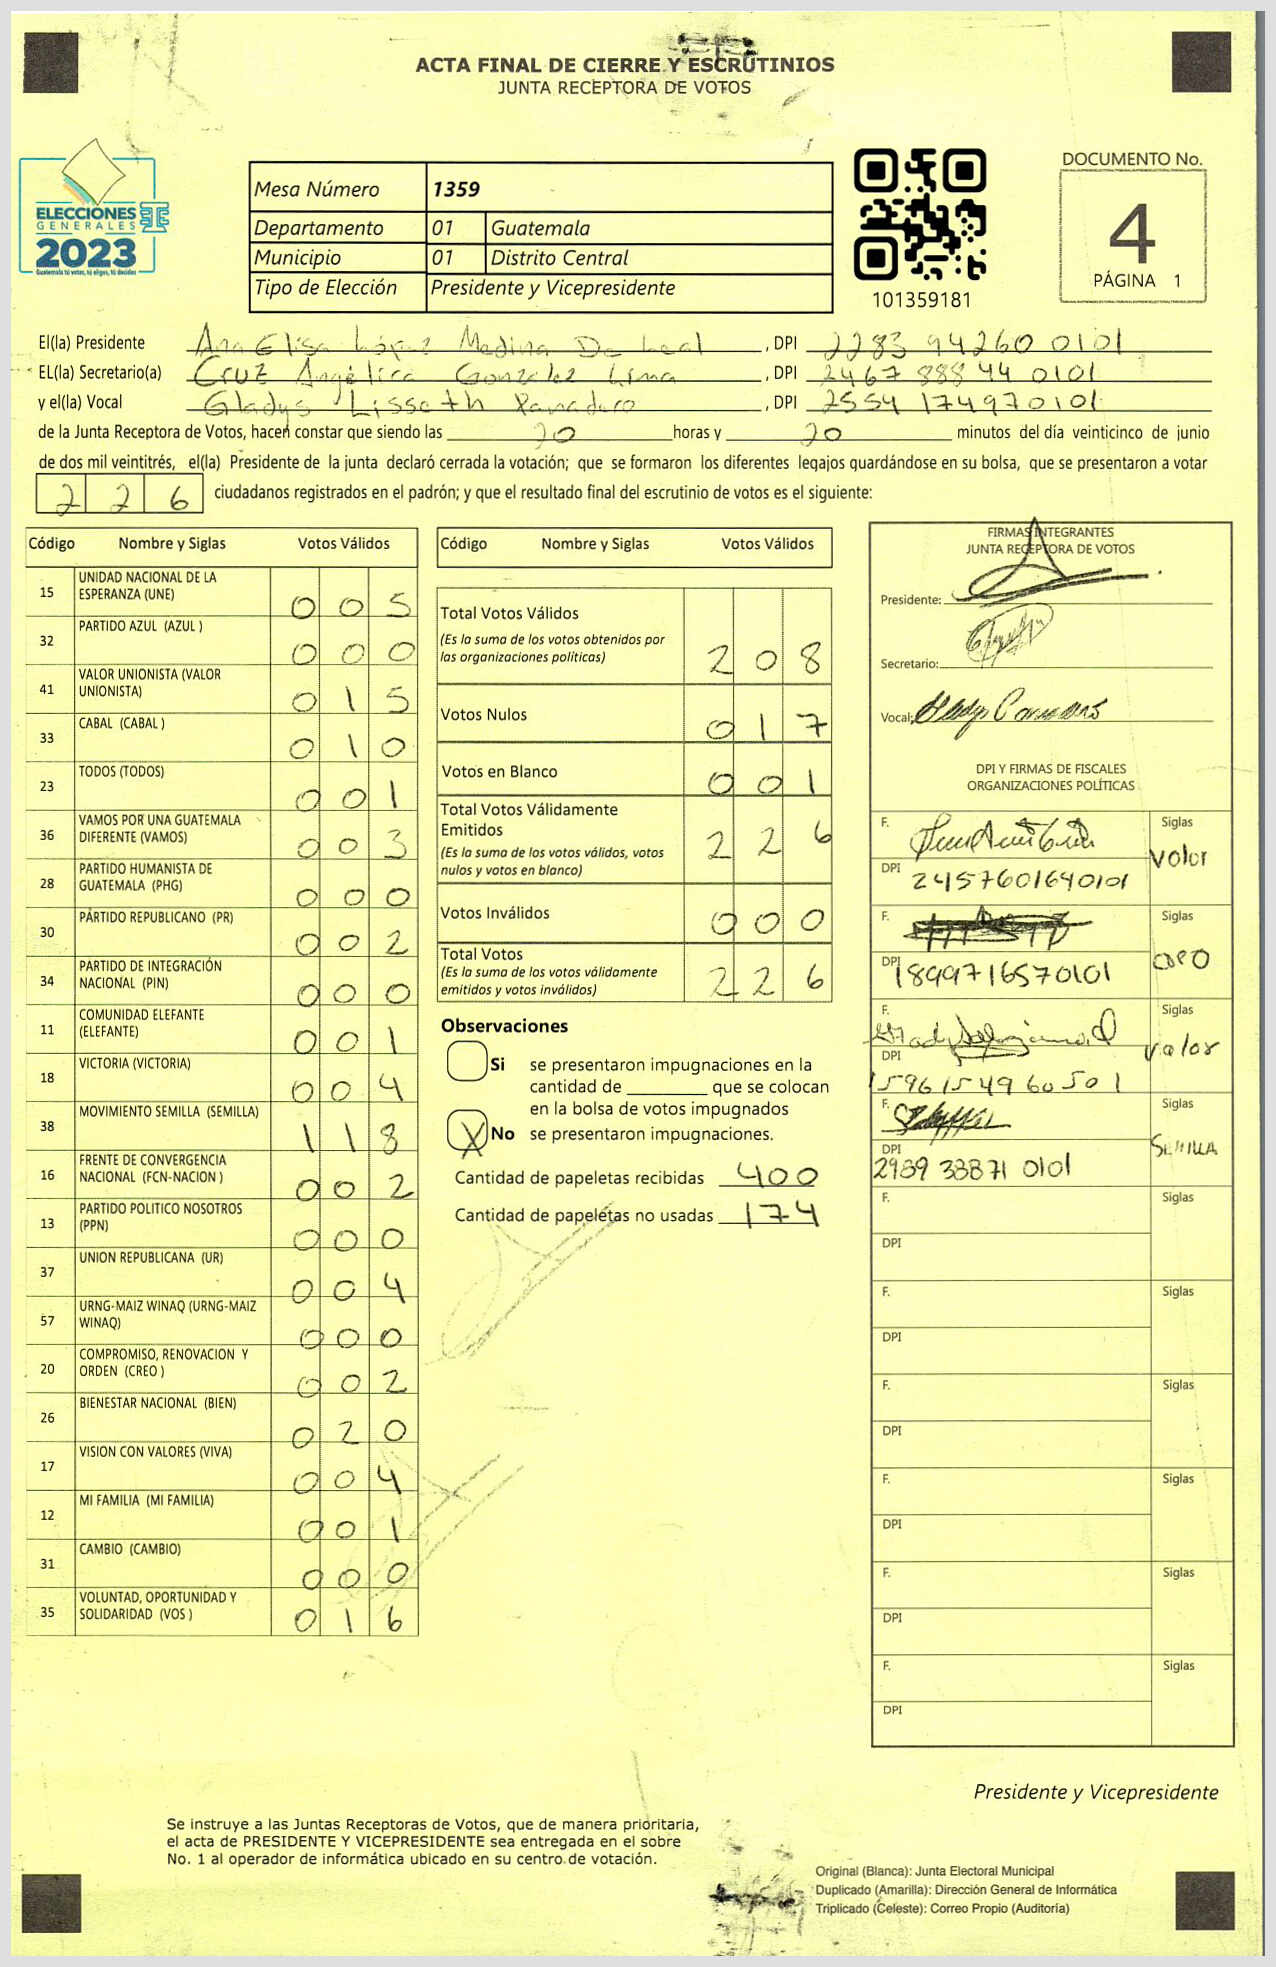 ACTA FINAL DE CIERRE Y ESCRUTINIOS
JUNTA RECEPTORA DE VOTOS
ELECCIONES
GENERALES
2023
Guatemala tú votas, tú eliges, tú decides
Mesa Número 1359
Departamento 01 Guatemala
Municipio 01 Distrito Central
Tipo de Elección Presidente y Vicepresidente
101359181
DOCUMENTO No.
4
PÁGINA 1
El(la) Presidente Ana Elisa López Medina De Leal , DPI 2283 94260 0101
EL(la) Secretario(a) Cruz Angélica González Lima , DPI 2467 88844 0101
y el(la) Vocal Gladys Lisseth , DPI 2554 174970101
de la Junta Receptora de Votos, hacen constar que siendo las 20 horas y 20 minutos del día veinticinco de junio
de dos mil veintitrés, el(la) Presidente de la junta declaró cerrada la votación; que se formaron los diferentes legajos guardándose en su bolsa, que se presentaron a votar
226 ciudadanos registrados en el padrón; y que el resultado final del escrutinio de votos es el siguiente:
Código Nombre y Siglas Votos Válidos
15 UNIDAD NACIONAL DE LA ESPERANZA (UNE) 005
32 PARTIDO AZUL (AZUL ) 000
41 VALOR UNIONISTA (VALOR UNIONISTA) 015
33 CABAL (CABAL ) 010
23 TODOS (TODOS) 001
36 VAMOS POR UNA GUATEMALA DIFERENTE (VAMOS) 003
28 PARTIDO HUMANISTA DE GUATEMALA (PHG) 000
30 PARTIDO REPUBLICANO (PR) 002
34 PARTIDO DE INTEGRACIÓN NACIONAL (PIN) 000
11 COMUNIDAD ELEFANTE (ELEFANTE) 001
18 VICTORIA (VICTORIA) 004
38 MOVIMIENTO SEMILLA (SEMILLA) 118
16 FRENTE DE CONVERGENCIA NACIONAL (FCN-NACION ) 002
13 PARTIDO POLITICO NOSOTROS (PPN) 000
37 UNION REPUBLICANA (UR) 004
57 URNG-MAIZ WINAQ (URNG-MAIZ WINAQ) 000
20 COMPROMISO, RENOVACION Y ORDEN (CREO ) 002
26 BIENESTAR NACIONAL (BIEN) 020
17 VISION CON VALORES (VIVA) 004
12 MI FAMILIA (MI FAMILIA) 001
31 CAMBIO (CAMBIO) 000
35 VOLUNTAD, OPORTUNIDAD Y SOLIDARIDAD (VOS ) 016
Código Nombre y Siglas Votos Válidos
Total Votos Válidos 208
(Es la suma de los votos obtenidos por
las organizaciones políticas)
Votos Nulos 017
Votos en Blanco 001
Total Votos Válidamente
Emitidos 226
(Es la suma de los votos válidos, votos
nulos y votos en blanco)
Votos Inválidos 000
Total Votos 226
(Es la suma de los votos válidamente
emitidos y votos inválidos)
Observaciones
Si se presentaron impugnaciones en la
cantidad de ________ que se colocan
en la bolsa de votos impugnados
X No se presentaron impugnaciones.
Cantidad de papeletas recibidas 400
Cantidad de papeletas no usadas 174
FIRMAS INTEGRANTES
JUNTA RECEPTORA DE VOTOS
Presidente:
Secretario:
Vocal:
DPI Y FIRMAS DE FISCALES
ORGANIZACIONES POLÍTICAS
F. Siglas
Valor
DPI 2457601640101
F. Siglas
DPI 1899716570101
F. Siglas
Valor
DPI 1596154960501
F. Siglas
SEMILLA
DPI 2989 38871 0101
F. Siglas
DPI
F. Siglas
DPI
F. Siglas
DPI
F. Siglas
DPI
F. Siglas
DPI
F. Siglas
DPI
Presidente y Vicepresidente
Se instruye a las Juntas Receptoras de Votos, que de manera prioritaria,
el acta de PRESIDENTE Y VICEPRESIDENTE sea entregada en el sobre
No. 1 al operador de informática ubicado en su centro de votación.
Original (Blanca): Junta Electoral Municipal
Duplicado (Amarilla): Dirección General de Informática
Triplicado (Celeste): Correo Propio (Auditoría)